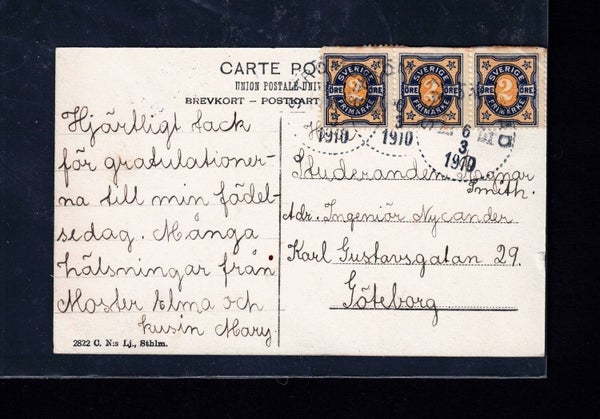 CARTE POS
UNION POSTALE UNIV
BREVKORT - POSTKART
SVERIGE
ÖRE 2 ÖRE
FRIMÄRKE
SVERIGE
ÖRE 2 ÖRE
FRIMÄRKE
SVERIGE
ÖRE 2 ÖRE
FRIMÄRKE
1910
1910
6
3
1910
Hjärtligt tack
för gratulationer-
na till min födel-
sedag. Många
hälsningar från
Moster Elma och
kusin Mary
Studeranden Ragnar
Smith.
Adr. Ingeniör Nycander
Karl Gustavsgatan 29.
Göteborg
2822 C. N:s Lj., Sthlm.